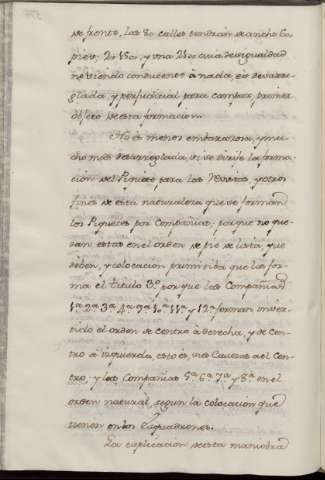 de frente, las 8º calles tendran de ancho 60
pies, 2ª 15ª, y una 21ª cuia desigualdad
no siendo conducente à nada, es desarre-
glada, y perjudicial para campar primer
objeto de esta formacion.
No es menos embarazosa, y mu-
cho mas desarreglada, si se dirije la forma-
ción del Piquete para las Revistas, y otros
fines de esta naturaleza que se forman
los Piquetes por Compañias; porque no que-
dan estas en el orden de pie de lista, que
deben, y colocacion primitiba que las for-
ma el titulo 3º porque las Compañias
1ª 2ª 3ª 4ª 9ª 10ª 11ª y 12ª forman inver-
tido el orden de Centro à derecha, y de Cen-
tro à izquierda, esto es, sus Cavezas al Cen-
tro y las Compañias 5ª 6ª 7ª y 8ª en el
orden natural, segun la colocacion que
tienen en los Esquadrones.
La esplicacion de esta maniobra